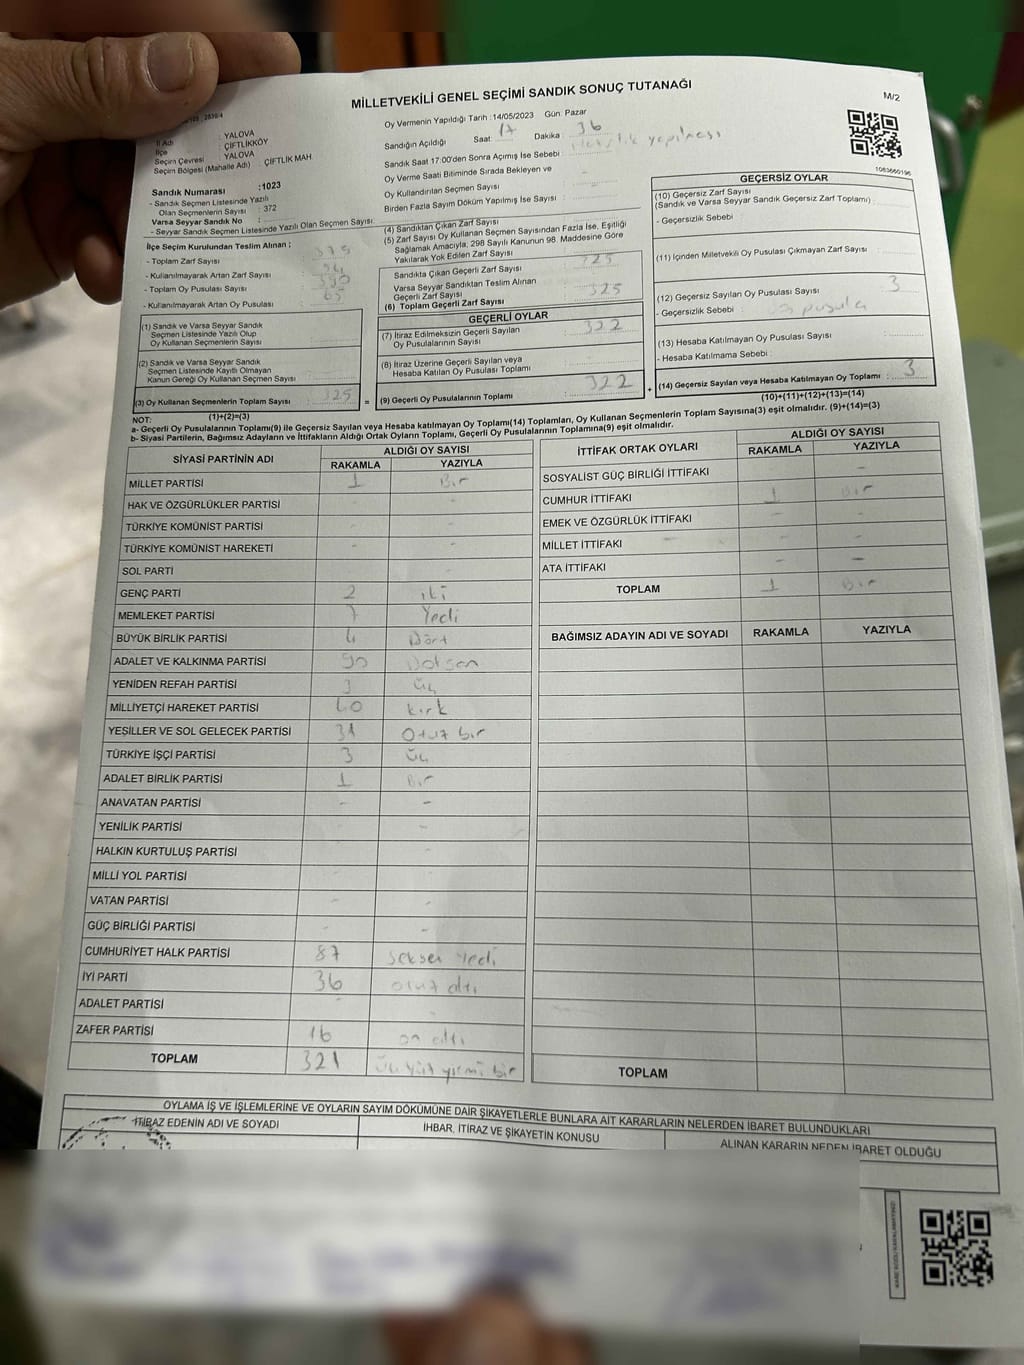 MİLLETVEKİLİ GENEL SEÇİMİ SANDIK SONUÇ TUTANAĞI
M/2
Oy Vermenin Yapıldığı Tarih :14/05/2023 Gün: Pazar
İl Adı : YALOVA
İlçe : ÇİFTLİKKÖY
Seçim Çevresi : YALOVA
Seçim Bölgesi (Mahalle Adı) : ÇİFTLİK MAH
Sandık Numarası :1023
- Sandık Seçmen Listesinde Yazılı
Olan Seçmenlerin Sayısı : 372
Varsa Seyyar Sandık No :
- Seyyar Sandık Seçmen Listesinde Yazılı Olan Seçmen Sayısı:
Sandığın Açıldığı Saat: 17 Dakika : 36
Sandık Saat 17:00'den Sonra Açılmış İse Sebebi : yapılması
Oy Verme Saati Bitiminde Sırada Bekleyen ve
Oy Kullandırılan Seçmen Sayısı :
Birden Fazla Sayım Dökümü Yapılmış İse Sayısı :
1083660196
İlçe Seçim Kurulundan Teslim Alınan ;
- Toplam Zarf Sayısı : 375
- Kullanılmayarak Artan Zarf Sayısı :
- Toplam Oy Pusulası Sayısı :
- Kullanılmayarak Artan Oy Pusulası : 65
(1) Sandık ve Varsa Seyyar Sandık
Seçmen Listesinde Yazılı Olup
Oy Kullanan Seçmenlerin Sayısı :
(2) Sandık ve Varsa Seyyar Sandık
Seçmen Listesinde Kayıtlı Olmayan
Kanun Gereği Oy Kullanan Seçmen Sayısı :
(3) Oy Kullanan Seçmenlerin Toplam Sayısı : 325 =
(1)+(2)=(3)
(4) Sandıktan Çıkan Zarf Sayısı
(5) Zarf Sayısı Oy Kullanan Seçmen Sayısından Fazla İse, Eşitliği
Sağlamak Amacıyla, 298 Sayılı Kanunun 98. Maddesine Göre
Yakılarak Yok Edilen Zarf Sayısı
Sandıkta Çıkan Geçerli Zarf Sayısı : 325
Varsa Seyyar Sandıktan Teslim Alınan
Geçerli Zarf Sayısı
(6) Toplam Geçerli Zarf Sayısı : 325
GEÇERLİ OYLAR
(7) İtiraz Edilmeksizin Geçerli Sayılan
Oy Pusulalarının Sayısı : 322
(8) İtiraz Üzerine Geçerli Sayılan veya
Hesaba Katılan Oy Pusulası Toplamı :
(9) Geçerli Oy Pusulalarının Toplamı : 322 +
GEÇERSİZ OYLAR
(10) Geçersiz Zarf Sayısı
(Sandık ve Varsa Seyyar Sandık Geçersiz Zarf Toplamı) :
- Geçersizlik Sebebi :
(11) İçinden Milletvekili Oy Pusulası Çıkmayan Zarf Sayısı :
(12) Geçersiz Sayılan Oy Pusulası Sayısı : 3
- Geçersizlik Sebebi : pusula
(13) Hesaba Katılmayan Oy Pusulası Sayısı :
- Hesaba Katılmama Sebebi :
(14) Geçersiz Sayılan veya Hesaba Katılmayan Oy Toplamı : 3
(10)+(11)+(12)+(13)=(14)
NOT:
a- Geçerli Oy Pusulalarının Toplamı(9) ile Geçersiz Sayılan veya Hesaba katılmayan Oy Toplamı(14) Toplamları, Oy Kullanan Seçmenlerin Toplam Sayısına(3) eşit olmalıdır. (9)+(14)=(3)
b- Siyasi Partilerin, Bağımsız Adayların ve İttifakların Aldığı Ortak Oyların Toplamı, Geçerli Oy Pusulalarının Toplamına(9) eşit olmalıdır.
SİYASİ PARTİNİN ADI ALDIĞI OY SAYISI
RAKAMLA YAZIYLA
MİLLET PARTİSİ 1 Bir
HAK VE ÖZGÜRLÜKLER PARTİSİ -
TÜRKİYE KOMÜNİST PARTİSİ - -
TÜRKİYE KOMÜNİST HAREKETİ - -
SOL PARTİ - -
GENÇ PARTİ 2 iki
MEMLEKET PARTİSİ 7 Yedi
BÜYÜK BİRLİK PARTİSİ 4 Dört
ADALET VE KALKINMA PARTİSİ 90 Doksan
YENİDEN REFAH PARTİSİ 3 Üç
MİLLİYETÇİ HAREKET PARTİSİ 40 kırk
YEŞİLLER VE SOL GELECEK PARTİSİ 31 Otuz bir
TÜRKİYE İŞÇİ PARTİSİ 3 Üç
ADALET BİRLİK PARTİSİ 1 Bir
ANAVATAN PARTİSİ - -
YENİLİK PARTİSİ - -
HALKIN KURTULUŞ PARTİSİ -
MİLLİ YOL PARTİSİ -
VATAN PARTİSİ - -
GÜÇ BİRLİĞİ PARTİSİ - -
CUMHURİYET HALK PARTİSİ 87 seksen Yedi
İYİ PARTİ 36 otuz altı
ADALET PARTİSİ - -
ZAFER PARTİSİ 16 on altı
TOPLAM 321 üç yüz yirmi bir
İTTİFAK ORTAK OYLARI ALDIĞI OY SAYISI
RAKAMLA YAZIYLA
SOSYALİST GÜÇ BİRLİĞİ İTTİFAKI -
CUMHUR İTTİFAKI 1 Bir
EMEK VE ÖZGÜRLÜK İTTİFAKI - -
MİLLET İTTİFAKI - - -
ATA İTTİFAKI - -
TOPLAM 1 Bir
BAĞIMSIZ ADAYIN ADI VE SOYADI RAKAMLA YAZIYLA
TOPLAM
OYLAMA İŞ VE İŞLEMLERİNE VE OYLARIN SAYIM DÖKÜMÜNE DAİR ŞİKAYETLERLE BUNLARA AİT KARARLARIN NELERDEN İBARET BULUNDUKLARI
İTİRAZ EDENİN ADI VE SOYADI
İHBAR, İTİRAZ VE ŞİKAYETİN KONUSU
ALINAN KARARIN NEDEN İBARET OLDUĞU